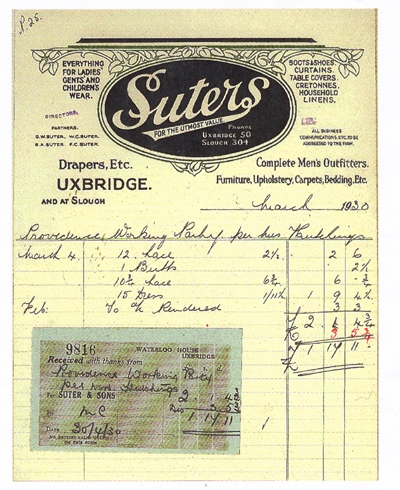 P. 25.
EVERYTHING
FOR LADIES'
GENTS' AND
CHILDREN'S
WEAR.
BOOTS & SHOES
CURTAINS.
TABLE COVERS.
CRETONNES,
HOUSEHOLD
LINENS.
Suters
FOR THE UTMOST VALUE.
Phones
UXBRIDGE 50
SLOUGH 304
DIRECTORS
PARTNERS.
G.W. SUTER, W.C. SUTER.
S.A. SUTER F.C. SUTER.
ALL BUSINESS
COMMUNICATIONS, ETC. TO BE
ADDRESSED TO THE FIRM.
Drapers, Etc.
UXBRIDGE.
AND AT SLOUGH
Complete Men's Outfitters.
Furniture, Upholstery, Carpets, Bedding, Etc.
March 1930
Providence Working Party per Mrs Hutchings
March 4 12 Lace 2½ 2 6
1 2½
Lace 6¾ 6
15 1/11½ 1 9 4½
Feb: To a/c Rendered 3 3
2 1 4¾
3 5¾
£ 1 14 11
9816
WATERLOO HOUSE
UXBRIDGE
Received with thanks from
Providence Working Party
per Mrs Hutchings
For SUTER & SONS
2 1 4
Dis 3 5
1 14 11
By MC
Date 30/4/30
NO RECEIPT VALID UNLESS
ON THIS FORM